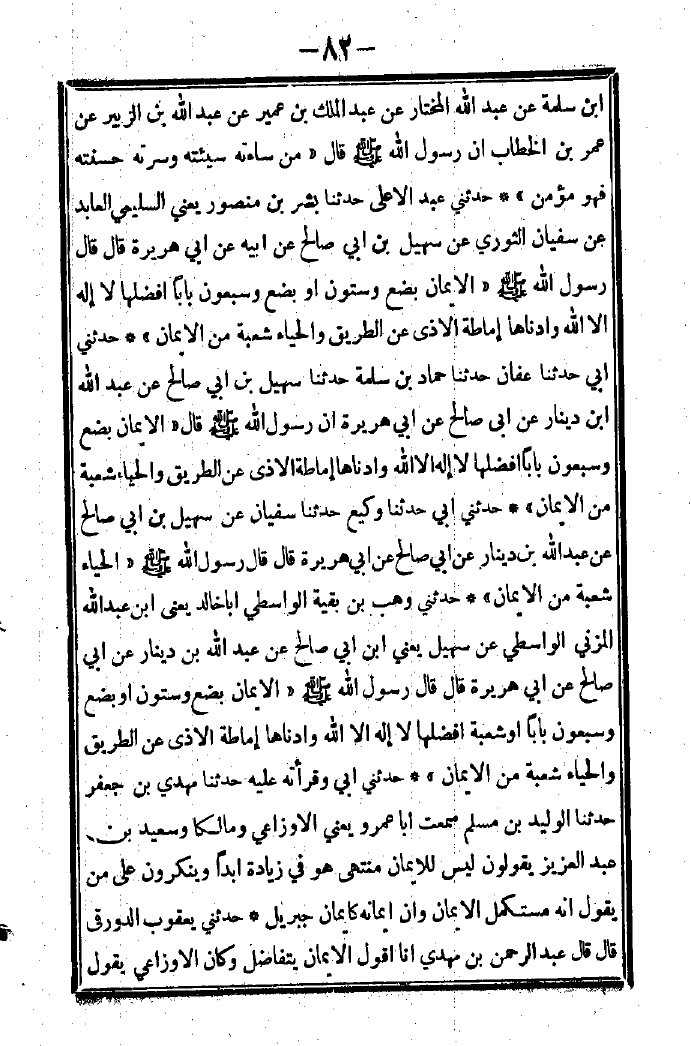 -٨٢-
ابن سلمة عن عبد الله المختار عن عبد الملك بن عمير عن عبد الله بن الزبير عن
عمر بن الخطاب ان رسول الله ﷺ قال « من ساءته سيئته وسرته حسنته
فهو مؤمن » * حدثني عبد الاعلى حدثنا بشر بن منصور يعني السليمي العابد
عن سفيان الثوري عن سهيل بن ابي صالح عن ابيه عن ابي هريرة قال قال
رسول الله ﷺ « الايمان بضع وستون او بضع وسبعون باباً افضلها لا إله
الا الله وادناها إماطة الاذى عن الطريق والحياء شعبة من الايمان » * حدثني
ابي حدثنا عفان حدثنا حماد بن سلمة حدثنا سهيل بن ابي صالح عن عبد الله
ابن دينار عن ابى صالح عن ابي هريرة ان رسول الله ﷺ قال « الايمان بضع
وسبعون باباً افضلها لا إله الا الله وادناها إماطة الاذى عن الطريق والحياء شعبة
من الايمان » * حدثني ابي حدثنا وكيع حدثنا سفيان عن سهيل بن ابي صالح
عن عبد الله بن دينار عن ابي صالح عن ابي هريرة قال قال رسول الله ﷺ « الحياء
شعبة من الايمان » * حدثني وهب بن بقية الواسطي اخالد يعنى ابن عبد الله
المزني الواسطي عن سهيل يعني ابن ابي صالح عن عبد الله بن دينار عن ابي
صالح عن ابي هريرة قال قال رسول الله ﷺ « الايمان بضع وستون او بضع
وسبعون باباً او شعبة افضلها لا إله الا الله وادناها إماطة الاذى عن الطريق
والحياء شعبة من الايمان » * حدثني ابي وقرأته عليه حدثنا مهدي بن جعفر
حدثنا الوليد بن مسلم سمعت ابا عمرو يعني الاوزاعي ومالكا وسعيد بن
عبد العزيز يقولون ليس للايمان منتهى هو في زيادة ابداً وينكرون على من
يقول انه مستكمل الايمان وان ايمانه كايمان جبريل * حدثني يعقوب الدورقى
قال قال عبد الرحمن بن مهدي انا اقول الايمان يتفاضل وكان الاوزاعي يقول